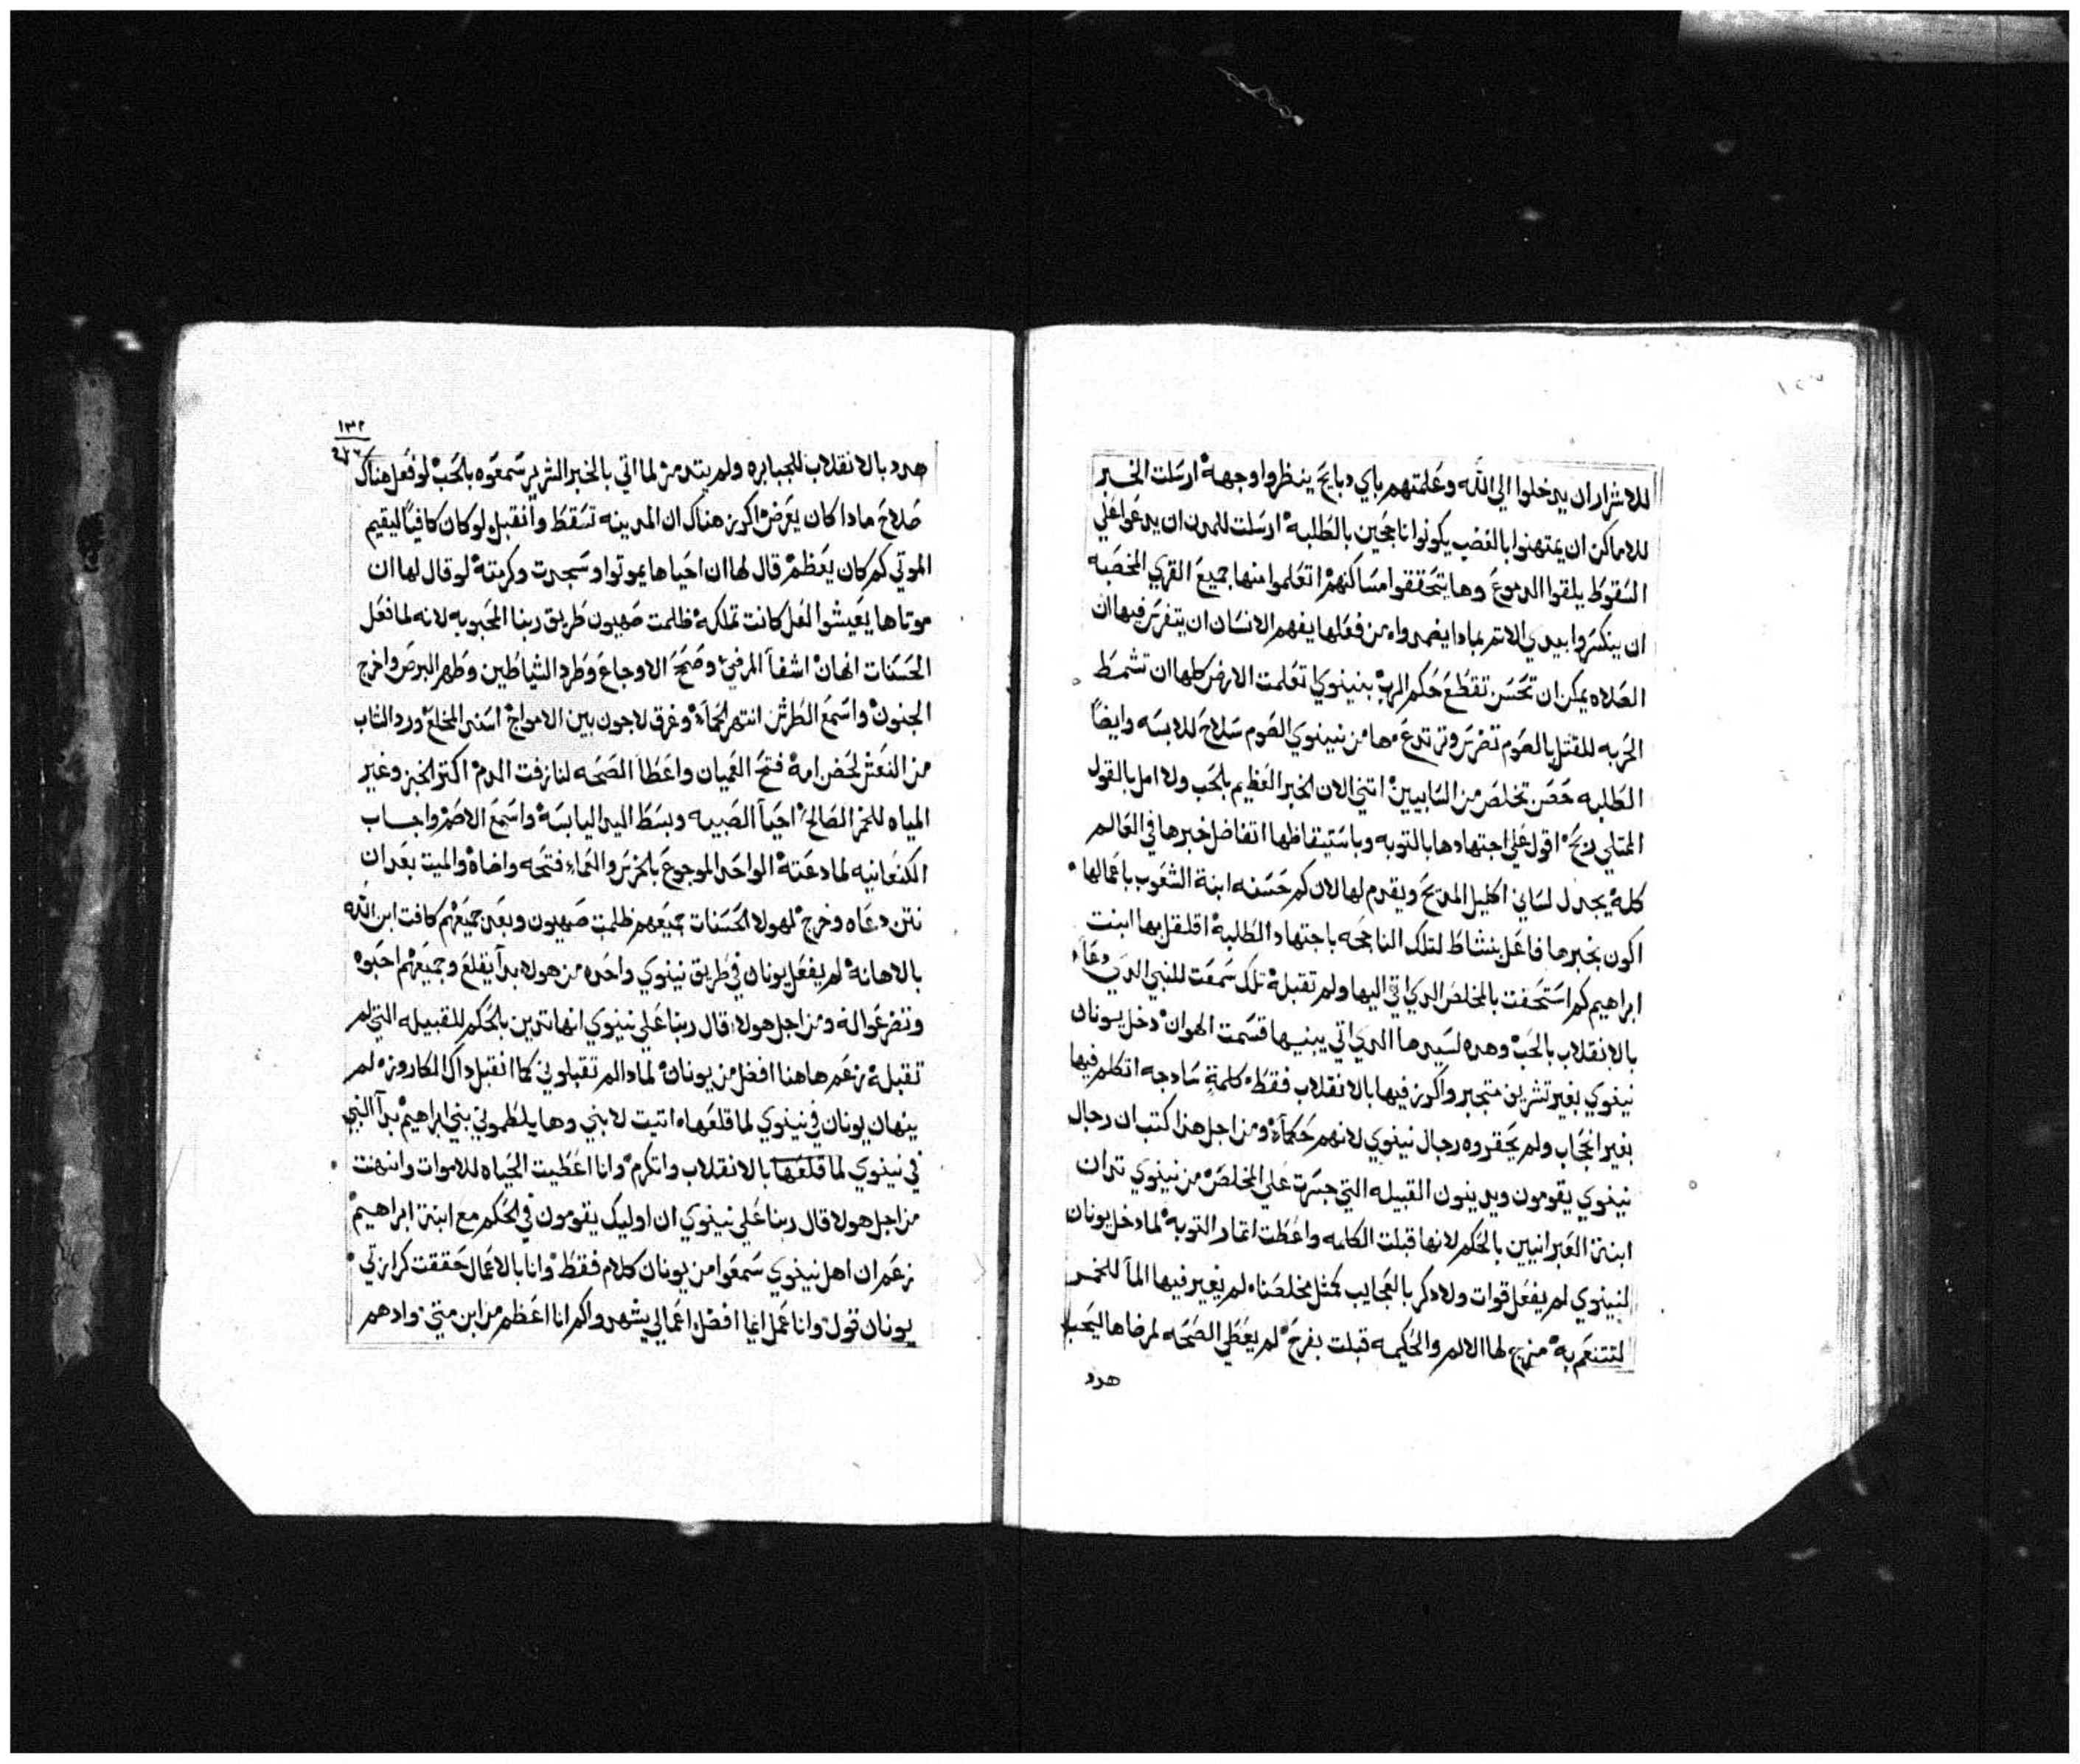 للاشرار ان يدخلوا الي الله وعلمتهم باي دبايح ينظروا وجهه ارسلت الخبر
للاماكن ان يمتهنوا بالغضب يكونوا ناجحين بالطلبه ارسلت للمدن ان يدعوا علي
السقوط يلقوا الدموع وها يتحققوا مساكنهم اتعلموا منها جميع القري المخصبه
ان ينكسروا بيدي الاتم بمادا يضمدواه من فعلها يفهم الانسان ان يتفرس فيها ان
الصلاه يمكن ان تحسن تقطع حكم الرب بنينوي اتعلمت الارض كلها ان تشمط
الحربه للقتل بالصوم تضرس وترتدع مها من نينوي الصوم سلاح للابسه وايضا
الطلبه حصن تخلص من السابيين اتني الان الخبر العظيم بالحب ولا امل بالقول
الممتلي ربح اقول علي اجتهادها بالتوبه وباستيقاظها اتفاضل خبرها في العالم
كله يجدل لساني اكليل المديح ويقدم لها لان كم حسنه ابنة الشعوب باعمالها
اكون بخبرها فاعل بنشاط لتلك الناجحه باجتهاد الطلبه اقلقل بها ابنت
ابراهيم كم استحفت بالمخلص الدي اتي اليها ولم تقبله تلك سمعت للنبي الدي دعا
بالانقلاب بالحب وهده لسيدها الدي اتي يبنيها قسمت الهوان دخل يونان
نينوي بغير تشرين متجبر واكرز فيها بالانقلاب فقط كلمة سادجه اتكلم فيها
بغير اعجاب ولم يحقروه رجال نينوي لانهم حكماء ومن اجل هدا كتب ان رجال
نينوي يقومون ويدينون القبيله التي جسرت علي المخلص من نينوي تدان
ابنة العبرانيين بالحكم لانها قبلت الكلمه واعطت اتمار التوبه لما دخل يونان
لنينوي لم يفعل قوات ولا دكر بالعجايب كمثل مخلصناه لم يغير فيها الما للخمر
لتتنعم به مزج لها الالم والحكيمه قبلت بفرح لم يعطي الصحه لمرضاها ليحب
هدد
١٣٢
هدد بالانقلاب للجبابره ولم يتدمر لما اتي بالخبر الشرير سمعوه بالحب لو فعل هناك
صلاح مادا كان يعرض اكرز هناك ان المدينه تسقط وانقبل لو كان كافيا ليقيم
الموتي كم كان يعظم قال لها ان احياها يموتوا وسجدت وكرمته لو قال لها ان
موتاها يعيشوا لعل كانت تملكه ظلمت صهيون طريق ربنا المحبوبه لانه لما فعل
الحسنات انهان اشفا المرضي وصحح الاوجاع وطرد الشياطين وطهر البرص واخرج
الجنون واسمع الطرش انتهر الحماه وغرق لاجون بين الامواج اسند المخلع ورد الشاب
من النعش لحضن امه فتح العميان واعطا الصحه لنازفت الدم اكتر الخبز وغير
المياه للخمر الصالح احيا الصبيه وبسط اليد اليابسه واسمع الاصم واجاب
الكنعانيه لما دعته الواحد الموجوع بالخرس والعماء فتحه واضاه والميت بعد ان
نتن دعاه وخرج لهولا الحسنات جميعهم ظلمت صهيون وبعد جميعهم كافت ابن الله
بالاهانه لم يفعل يونان في طريق نينوي واحده من هولا بدا يفلع وجميعهم احبوه
وتضرعوا له ومن اجل هولا قال ربنا علي نينوي انها تدين بالحكم للقبيله التي لم
تقبله زعم هاهنا افضل من يونان لمادا لم تقبلوني كما انقبل داك الكاروزه لم
ينهان يونان في نينوي لما قلعهاه اتيت لابني وها يلطموني بني ابراهيم بدا النبي
في نينوي لما قلعها بالانقلاب واتكرم وانا اعطيت الحياه للاموات وانهنت
من اجل هولا قال ربنا علي نينوي ان اوليك يقومون في الحكم مع ابنة ابراهيم
زعم ان اهل نينوي سمعوا من يونان كلام فقط وانا بالاعمال حققت كرازتي
يونان قول وانا عمل ايما افضل اعمالي يشهدوا كم انا اعظم من ابن متي وادهم